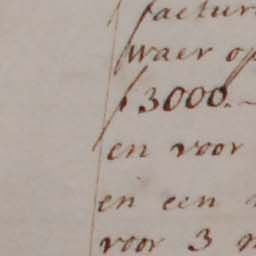 factur
waer op
ƒ 3000.-
en voor
en een
voor 3